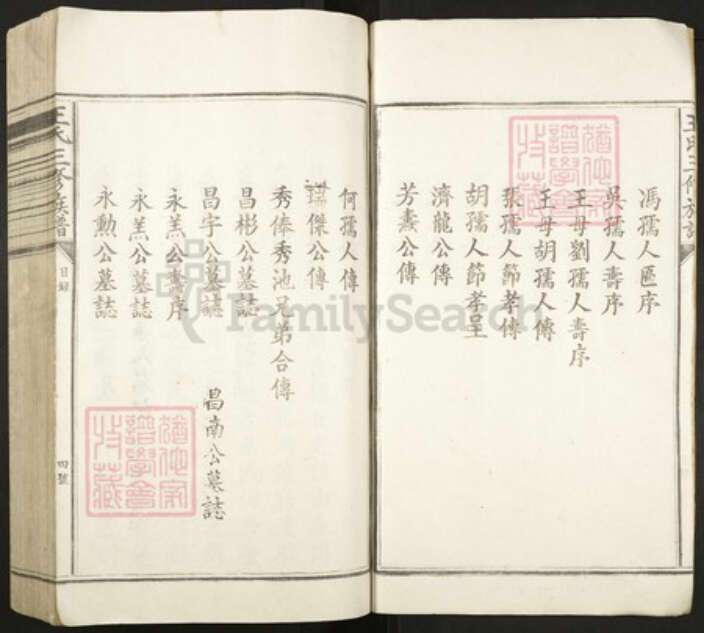 馮孺人匾序
吳孺人壽序
王母劉孺人壽序
王母胡孺人傳
張孺人節孝傳
胡孺人節孝呈
濟龍公傳
芳燾公傳
何孺人傳
瑞傑公傳
秀俸秀池兄弟合傳
昌彬公墓誌
昌宇公墓誌
昌南公墓誌
永羔公壽序
永羔公墓誌
永勲公墓誌
王氏三修族譜
目錄
四號
王氏三修族譜
猶他家譜學會特藏
猶他家譜學會特藏
FamilySearch